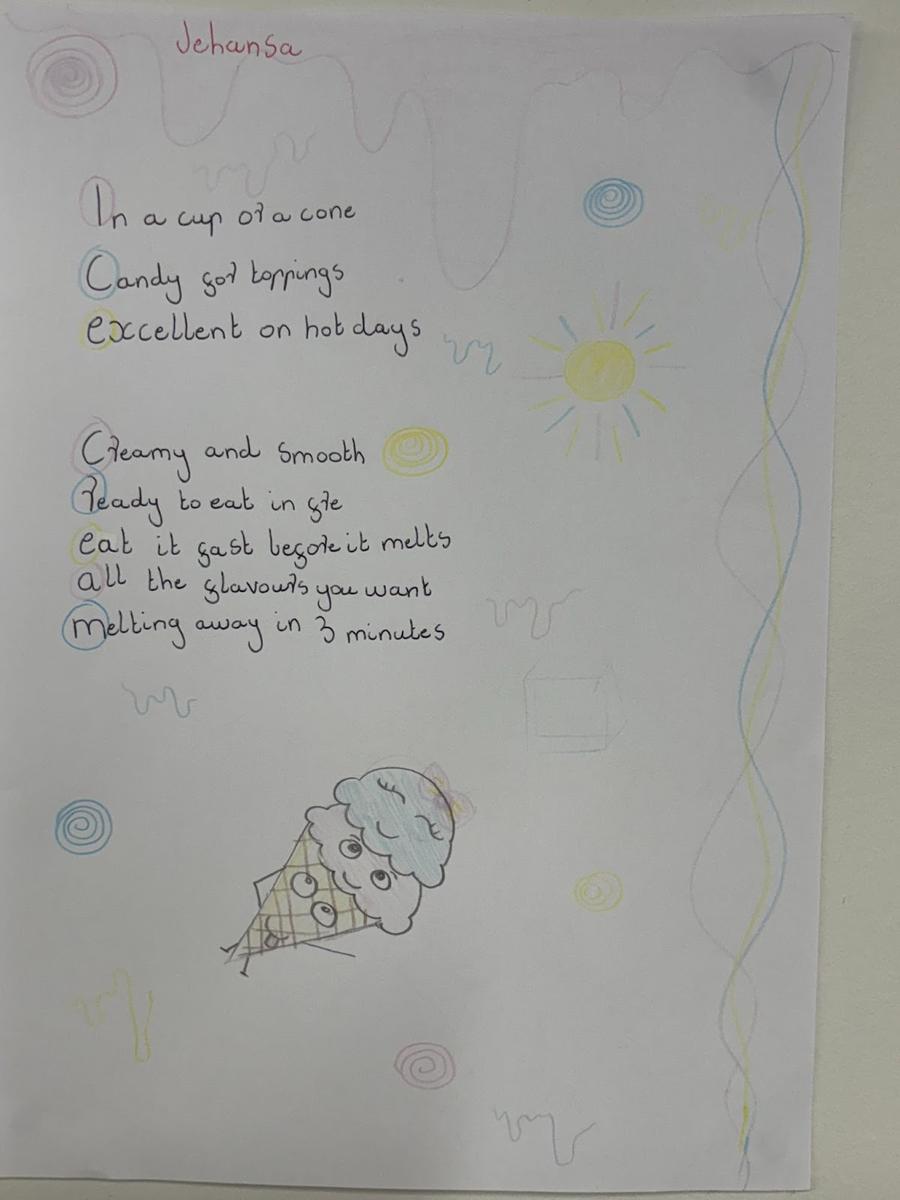 Jehansa
In a cup or a cone
Candy for toppings
excellent on hot days
Creamy and smooth
ready to eat in fre
eat it fast before it melts
all the flavours you want
melting away in 3 minutes